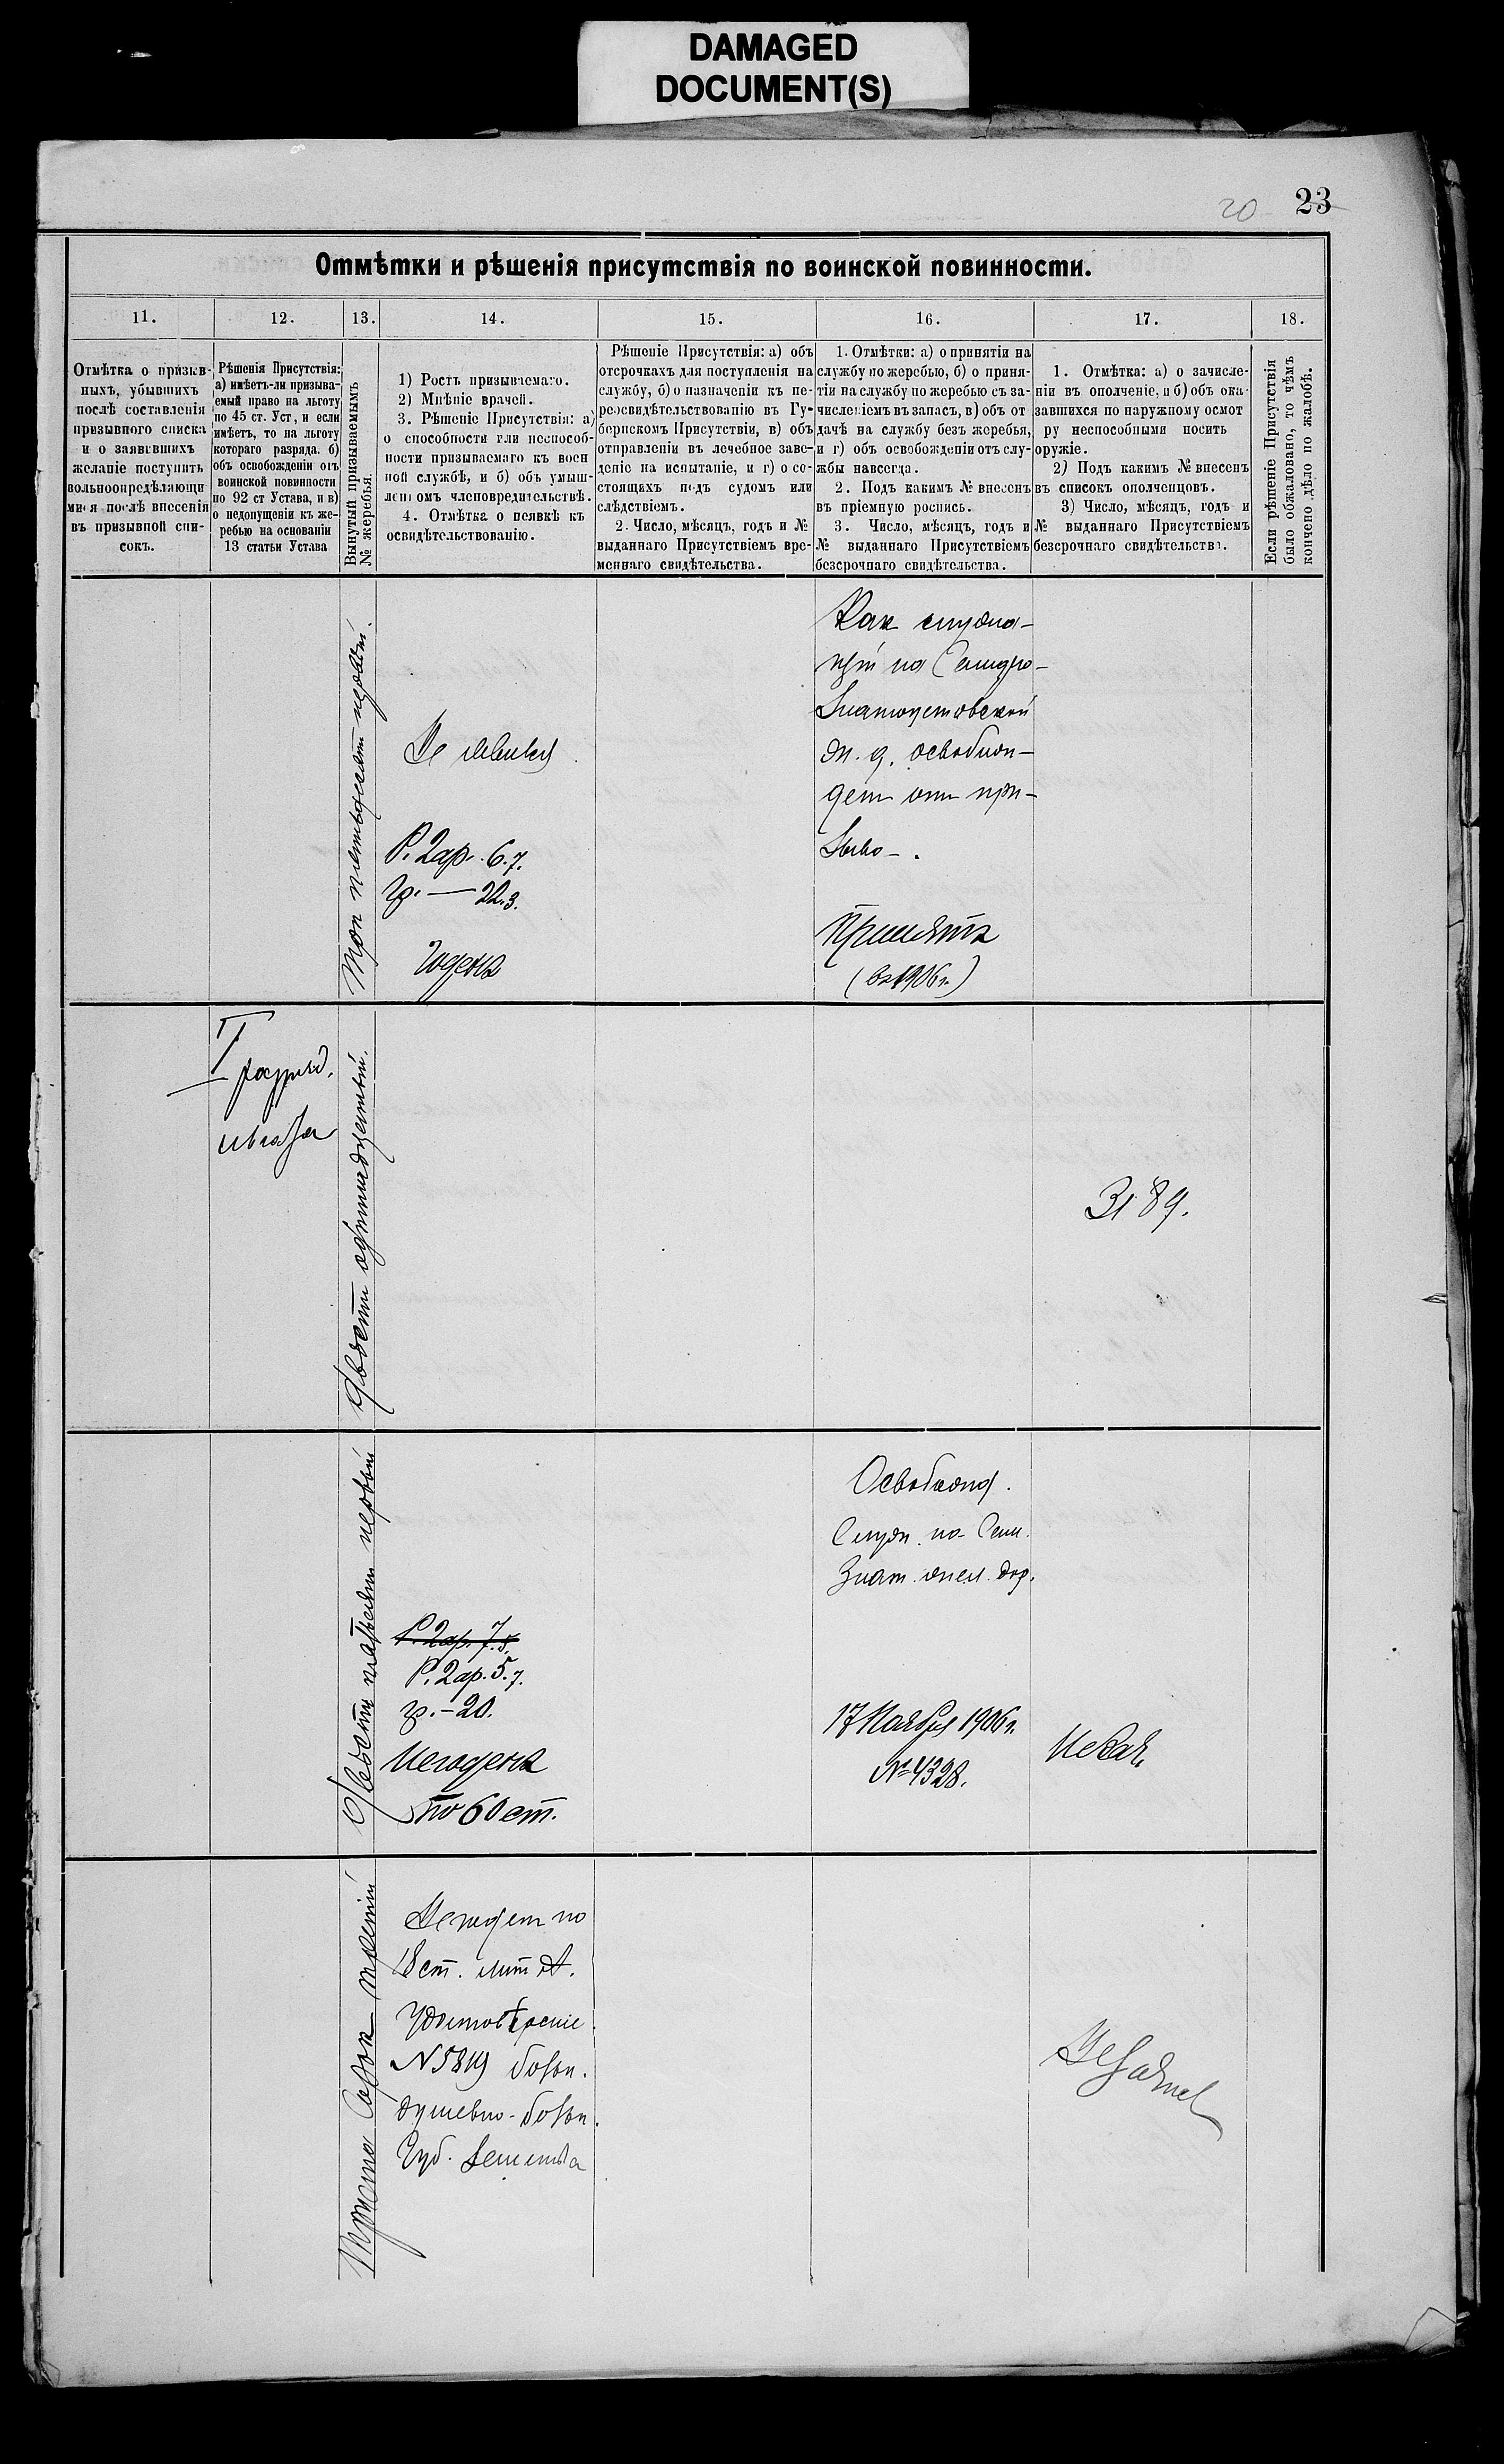 DAMAGED
DOCUMENT(S)
20 23
Отмѣтки и рѣшенія присутствія по воинской повинности.
11. 12. 13. 14. 15. 16. 17. 18.
Отмѣтка о призыв-
ныхъ, убывшихъ
послѣ составленія
призывного списка
и о заявившихъ
желаніе поступить
вольноопредѣляющи
мися послѣ внесенія
въ призывной спи-
сокъ.
Рѣшенія Присутствія:
а) имѣетъ-ли призыва-
емый право на льготу
по 45 ст. Уст, и если
имѣетъ, то на льготу
котораго разряда. б)
объ освобожденіи отъ
воинской повинности
по 92 ст Устава, и в)
о недопущеніи къ же-
ребью на основаніи
13 статьи Устава
Вынутый призываемымъ
№ жеребья.
1) Ростъ призываемаго.
2) Мнѣніе врачей.
3. Рѣшеніе Присутствія: а)
о способности или неспособ-
ности призываемаго къ воен
ной службѣ, и б) объ умыш-
ленномъ членовредительствѣ.
4. Отмѣтка о неявкѣ къ
освидѣтельствованію.
Рѣшеніе Присутствія: а) объ
отсрочкахъ для поступленія на
службу, б) о назначеніи къ пе-
реосвидѣтельствованію въ Гу-
бернскомъ Присутствіи, в) объ
отправленіи въ лечебное заве-
деніе на испытаніе, и г) о со-
стоящихъ подъ судомъ или
слѣдствіемъ.
2. Число, мѣсяцъ, годъ и №
выданнаго Присутствіемъ вре-
меннаго свидѣтельства.
1. Отмѣтки: а) о принятіи на
службу по жеребью, б) о приня-
тіи на службу по жеребью съ за-
численіемъ въ запасъ, в) объ от
дачѣ на службу безъ жеребья,
и г) объ освобожденіи отъ слу-
жбы навсегда.
2. Подъ какимъ № внесенъ
въ пріемную роспись.
3. Число, мѣсяцъ, годъ и
№ выданнаго Присутствіемъ
безсрочнаго свидѣтельства.
1. Отмѣтка: а) о зачисле-
ніи въ ополченіе, и б) объ ока
завшихся по наружному осмот
ру неспособными носить
оружіе.
2) Подъ какимъ № внесенъ
въ списокъ ополченцовъ.
3) Число, мѣсяцъ, годъ и
№ выданнаго Присутствіемъ
безсрочнаго свидѣтельства.
Если рѣшеніе Присутствія
было обжаловано, то чѣмъ
кончено дѣло по жалобѣ.
Три первый.
Не явился
Р. 2 ар. 6.7.
гр. — 22.3.
Годенъ
Как служа-
щій на Самаро-
Златоустовской
ж. д. освобож-
ден от при-
зыва.
Принятъ
(въ 1906 г.)
I разряд.
Двѣсти одиннадцатый.
3189.
Двѣсти первый
Р. 2 ар. 7.5.
Р. 2 ар. 5.7.
гр. – 20.
Негоденъ
по 60 ст.
Освобожд.
Служ. по Сам.
Злат. жел. дор.
17 Ноября 1906 г.
№ 4328.
Триста Сорок третій
Негоден по
18 ст. лит А.
Удостовѣреніе
N 5819 больн.
душевно-больн.
Губ. Земства